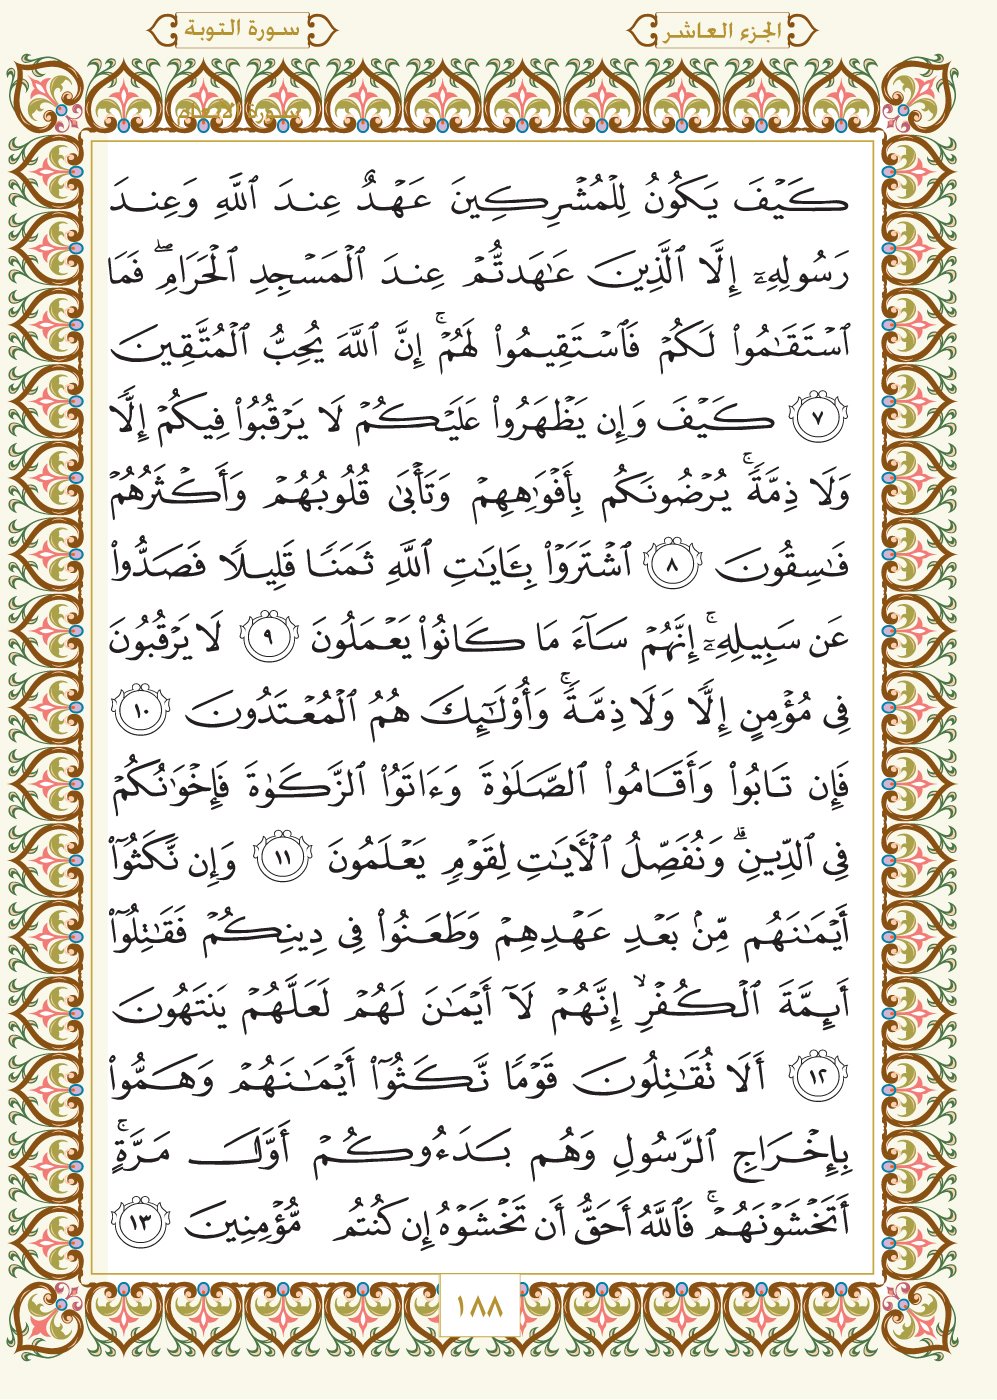 الجزء العاشر
سورة التوبة
كَيۡفَ يَكُونُ لِلۡمُشۡرِكِينَ عَهۡدٌ عِندَ ٱللَّهِ وَعِندَ
رَسُولِهِۦٓ إِلَّا ٱلَّذِينَ عَٰهَدتُّمۡ عِندَ ٱلۡمَسۡجِدِ ٱلۡحَرَامِۖ فَمَا
ٱسۡتَقَٰمُواْ لَكُمۡ فَٱسۡتَقِيمُواْ لَهُمۡۚ إِنَّ ٱللَّهَ يُحِبُّ ٱلۡمُتَّقِينَ
٧ كَيۡفَ وَإِن يَظۡهَرُواْ عَلَيۡكُمۡ لَا يَرۡقُبُواْ فِيكُمۡ إِلّٗا
وَلَا ذِمَّةٗۚ يُرۡضُونَكُم بِأَفۡوَٰهِهِمۡ وَتَأۡبَىٰ قُلُوبُهُمۡ وَأَكۡثَرُهُمۡ
فَٰسِقُونَ ٨ ٱشۡتَرَوۡاْ بِـَٔايَٰتِ ٱللَّهِ ثَمَنٗا قَلِيلٗا فَصَدُّواْ
عَن سَبِيلِهِۦٓۚ إِنَّهُمۡ سَآءَ مَا كَانُواْ يَعۡمَلُونَ ٩ لَا يَرۡقُبُونَ
فِي مُؤۡمِنٍ إِلّٗا وَلَا ذِمَّةٗۚ وَأُوْلَٰٓئِكَ هُمُ ٱلۡمُعۡتَدُونَ ١٠
فَإِن تَابُواْ وَأَقَامُواْ ٱلصَّلَوٰةَ وَءَاتَوُاْ ٱلزَّكَوٰةَ فَإِخۡوَٰنُكُمۡ
فِي ٱلدِّينِۗ وَنُفَصِّلُ ٱلۡأٓيَٰتِ لِقَوۡمٖ يَعۡلَمُونَ ١١ وَإِن نَّكَثُوٓاْ
أَيۡمَٰنَهُم مِّنۢ بَعۡدِ عَهۡدِهِمۡ وَطَعَنُواْ فِي دِينِكُمۡ فَقَٰتِلُوٓاْ
أَئِمَّةَ ٱلۡكُفۡرِۙ إِنَّهُمۡ لَآ أَيۡمَٰنَ لَهُمۡ لَعَلَّهُمۡ يَنتَهُونَ
١٢ أَلَا تُقَٰتِلُونَ قَوۡمٗا نَّكَثُوٓاْ أَيۡمَٰنَهُمۡ وَهَمُّواْ
بِإِخۡرَاجِ ٱلرَّسُولِ وَهُم بَدَءُوكُمۡ أَوَّلَ مَرَّةٍۚ
أَتَخۡشَوۡنَهُمۡۚ فَٱللَّهُ أَحَقُّ أَن تَخۡشَوۡهُ إِن كُنتُم مُّؤۡمِنِينَ ١٣
١٨٨